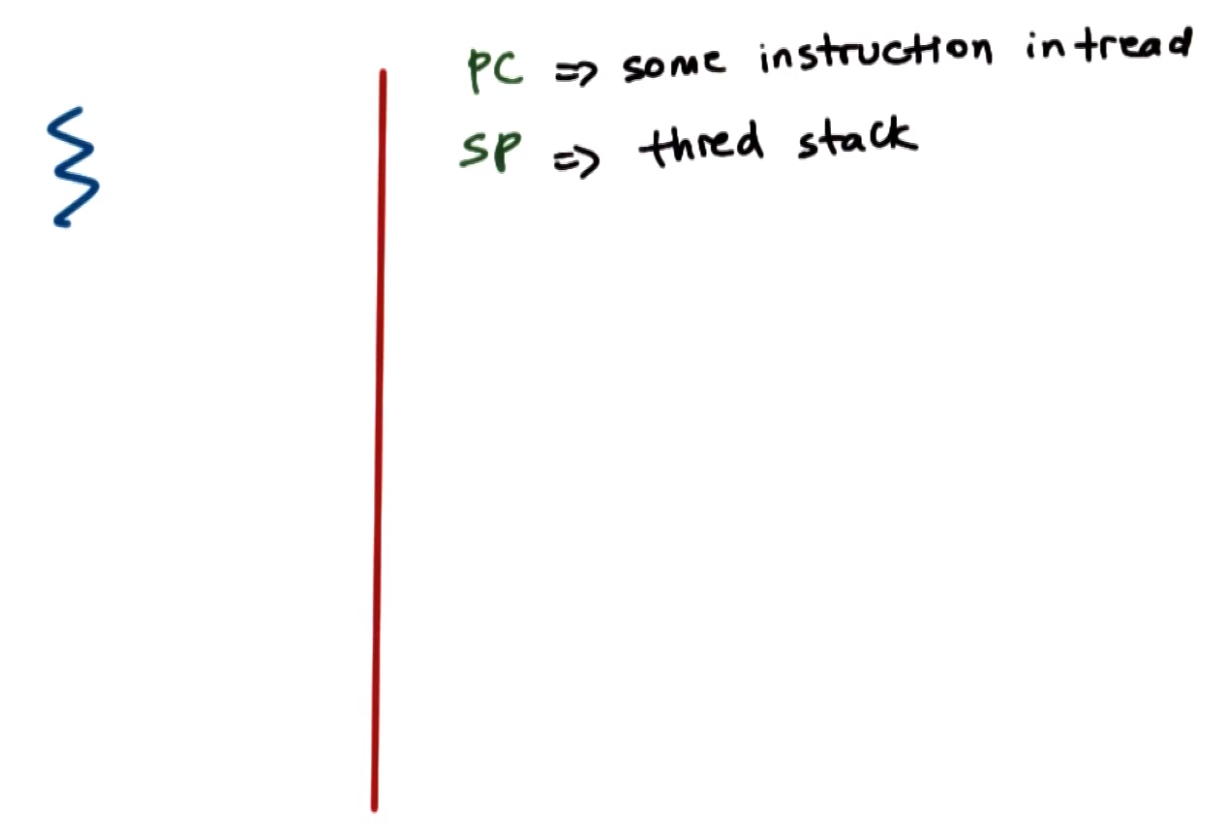 PC => some instruction in tread
SP => thred stack